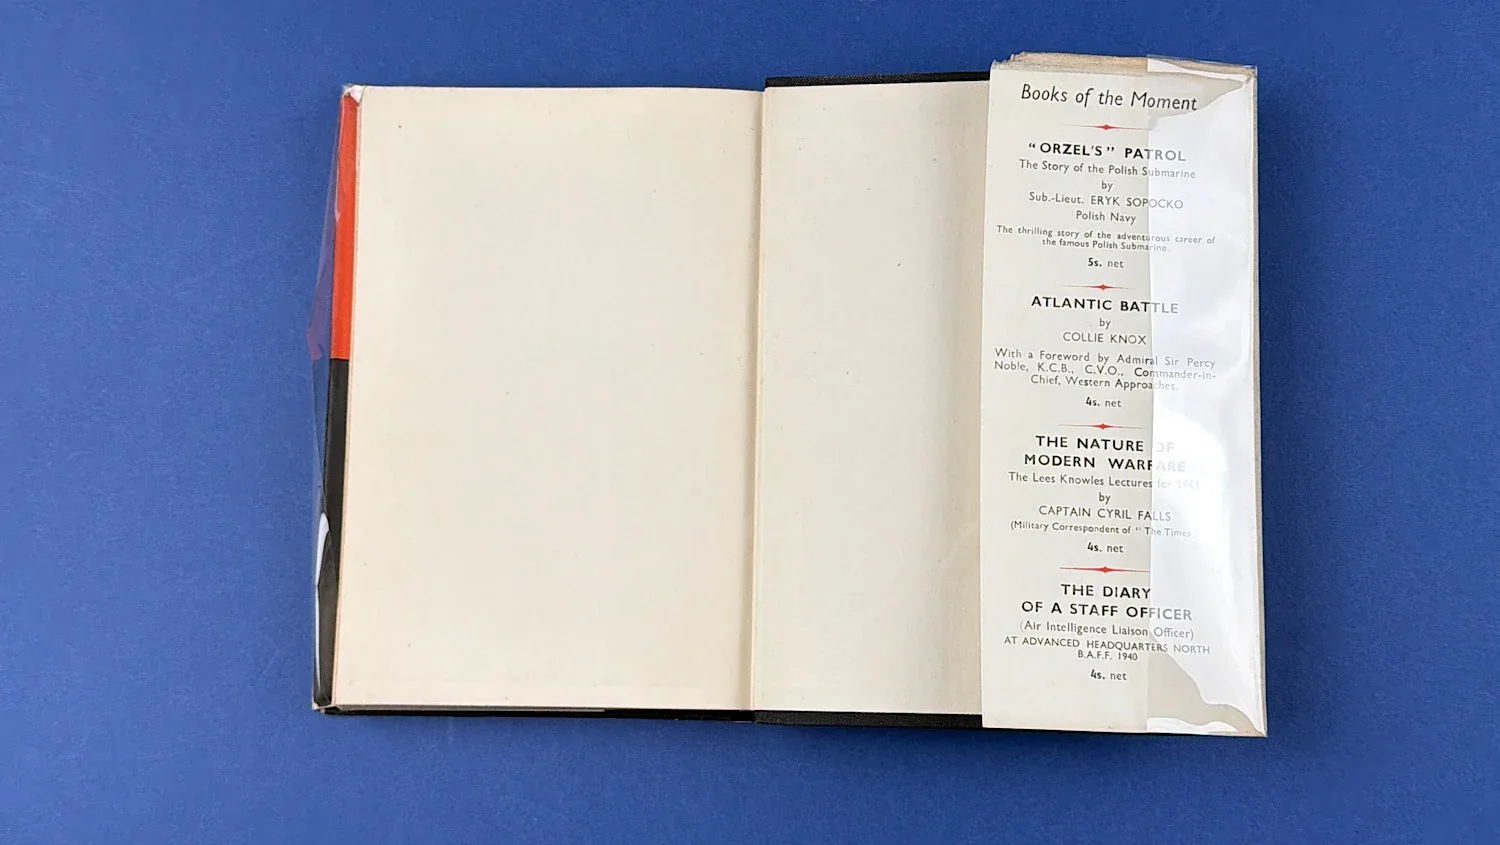 Books of the Moment
"ORZEL'S" PATROL
The Story of the Polish Submarine
by
Sub.-Lieut. ERYK SOPOCKO
Polish Navy
The thrilling story of the adventurous career of
the famous Polish Submarine.
5s. net
ATLANTIC BATTLE
by
COLLIE KNOX
With a Foreword by Admiral Sir Percy
Noble, K.C.B., C.V.O., Commander-in-
Chief, Western Approaches.
4s. net
THE NATURE OF
MODERN WARFARE
The Lees Knowles Lectures for 1941
by
CAPTAIN CYRIL FALLS
(Military Correspondent of "The Times")
4s. net
THE DIARY
OF A STAFF OFFICER
(Air Intelligence Liaison Officer)
AT ADVANCED HEADQUARTERS NORTH
B.A.F.F. 1940
4s. net